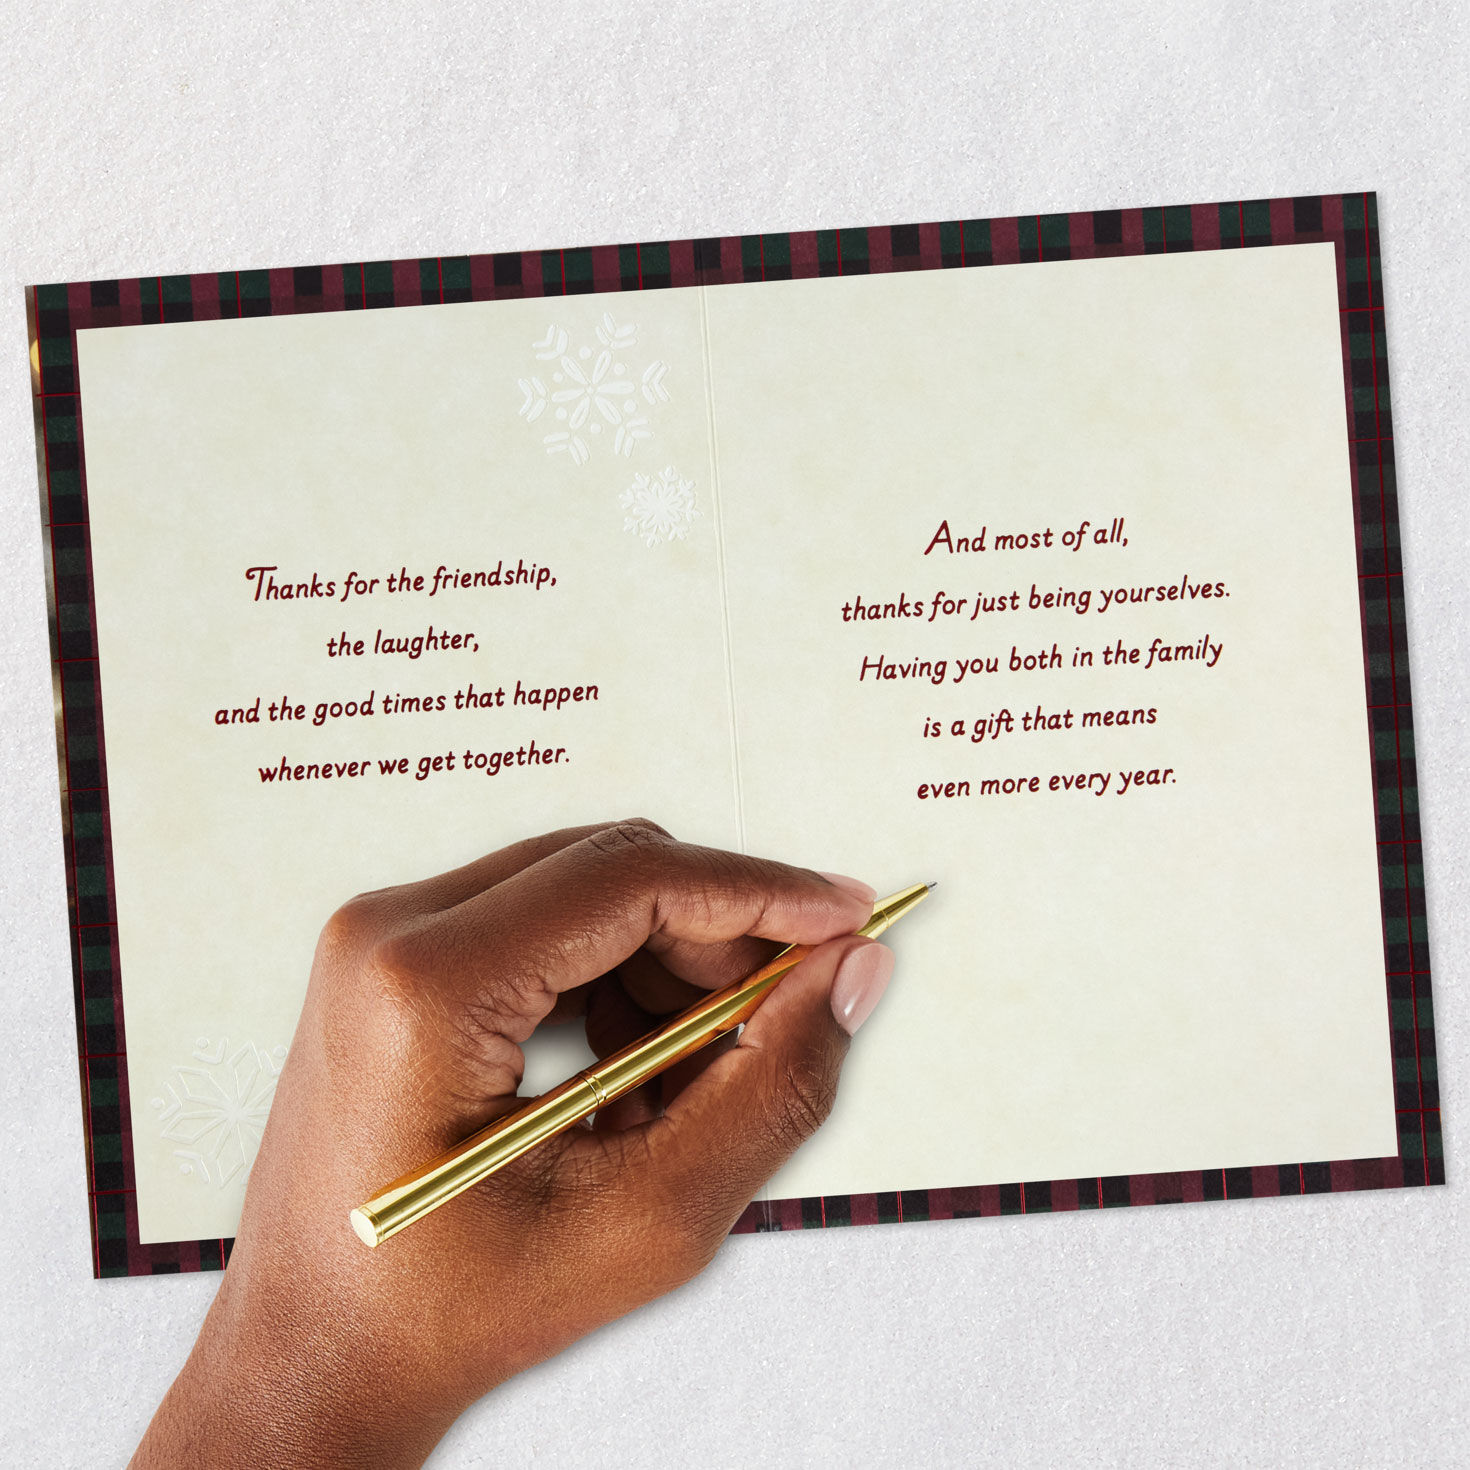 Thanks for the friendship,
the laughter,
and the good times that happen
whenever we get together.
And most of all,
thanks for just being yourselves.
Having you both in the family
is a gift that means
even more every year.